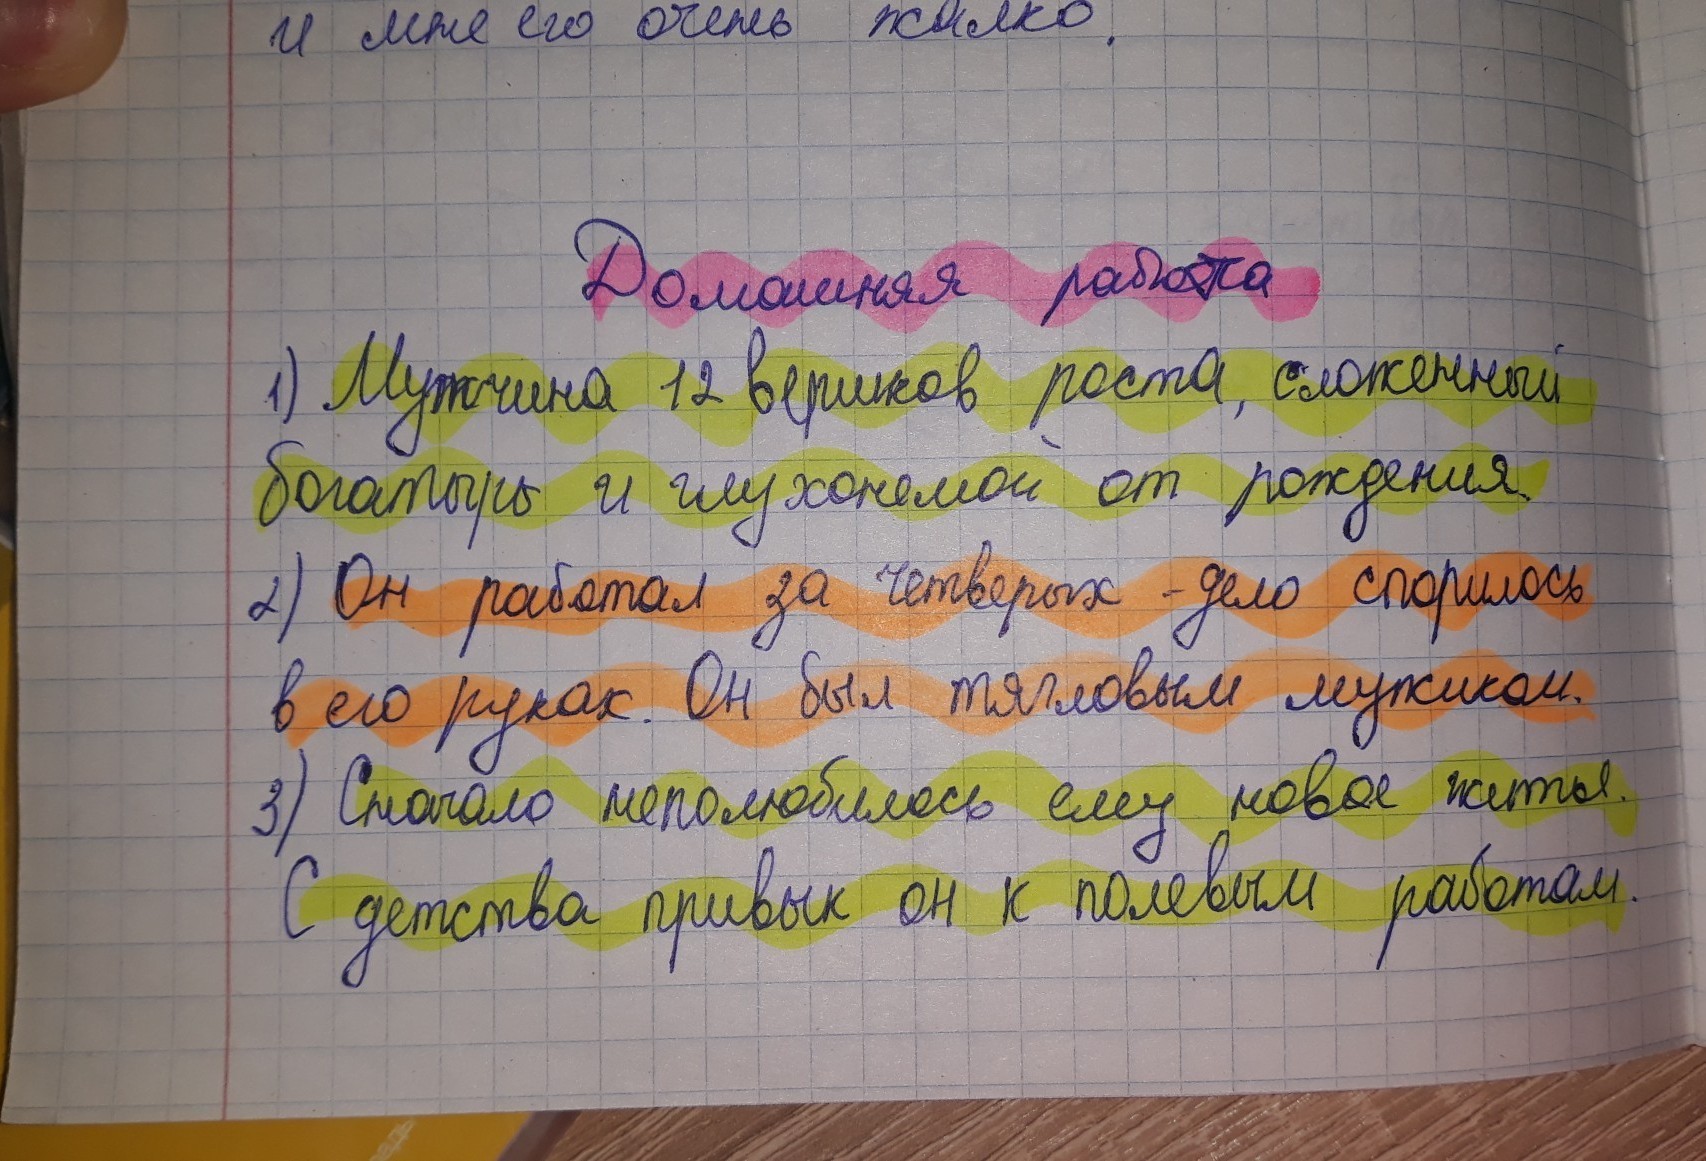 и мне его очень жалко.
Домашняя работа
1) Мужчина 12 вершков роста, сложенный
богатырь и глухонемой от рождения.
2) Он работал за четверых - дело спорилось
в его руках. Он был тягловым мужиком.
3) Сначало неполюбилось ему новое житье.
С детства привык он к полевым работам.